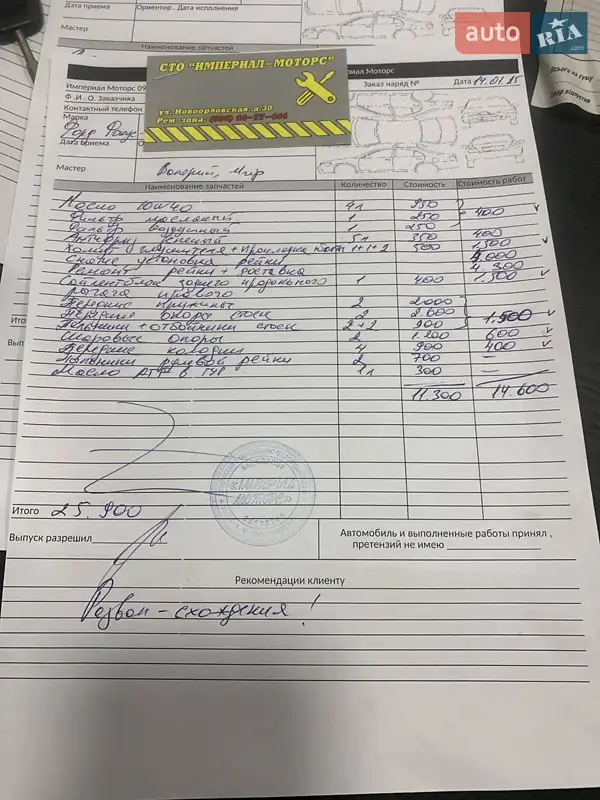 Дата приема
Ориентир . Дата исполнения
Мастер
Наименование запчастей
auto RIA .com
Всього на суму
СТО "ИМПЕРИАЛ-МОТОРС"
ул. Новоорловская, д 30
Рем. зона:
Империал Моторс 09
иал Моторс
Заказ наряд №
Дата 14.01.25
Ф .И . О. Заказчика
Контактный телефон
Марка
Форд Фокус
Дата приема
Мастер Валерий, Мир
Наименование запчастей Количество Стоимость Стоимость работ
Масло 10W40 4л 950
Фильтр масляный 1 250 400
Фильтр воздушный 1 250
Антифриз зеленый 5л 350 400
Хомут глушителя + прокладка 1+1+2 500 1.300
Снятие установка рейки
Ремонт рейки + доставка 4.300
Сайлентблок заднего продольного 1 400 1.500
рычага правого
Передние пружины 2 2000
Передние опора стоек 2 2.600 1.500
Пыльники + отбойники стоек 2+2 900
Шаровые опоры 2 1.200 600
Передние колодки 4 900 400
Пыльники рулевой рейки 2 700 —
Масло ATF в ГУР 1л 300 —
11.300 14.600
Итого
Вып
«ИМПЕРИАЛ МОТОРС»
Итого 25.900
Выпуск разрешил
Автомобиль и выполненные работы принял ,
претензий не имею
Рекомендации клиенту
Развал-схождения!